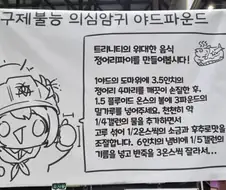 구제불능 의심암귀 야드파운드
트리니티의 위대한 음식
정어리파이를 만들어봅시다!
1야드의 도마위에 3.5인치의
정어리 4마리를 깨끗이 손질한 후,
1.5 플루이드 온스의 물에 3파운드의
밀가루를 넣어주세요. 천천히 약
1/4갤런의 물을 추가하면서
고루 섞어 1/2온스씩의 소금과 후추로맛을
조절합니다. 6인치의 냄비에 1/5갤런의
기름을 넣고 반죽을 3온스씩 잘라서...